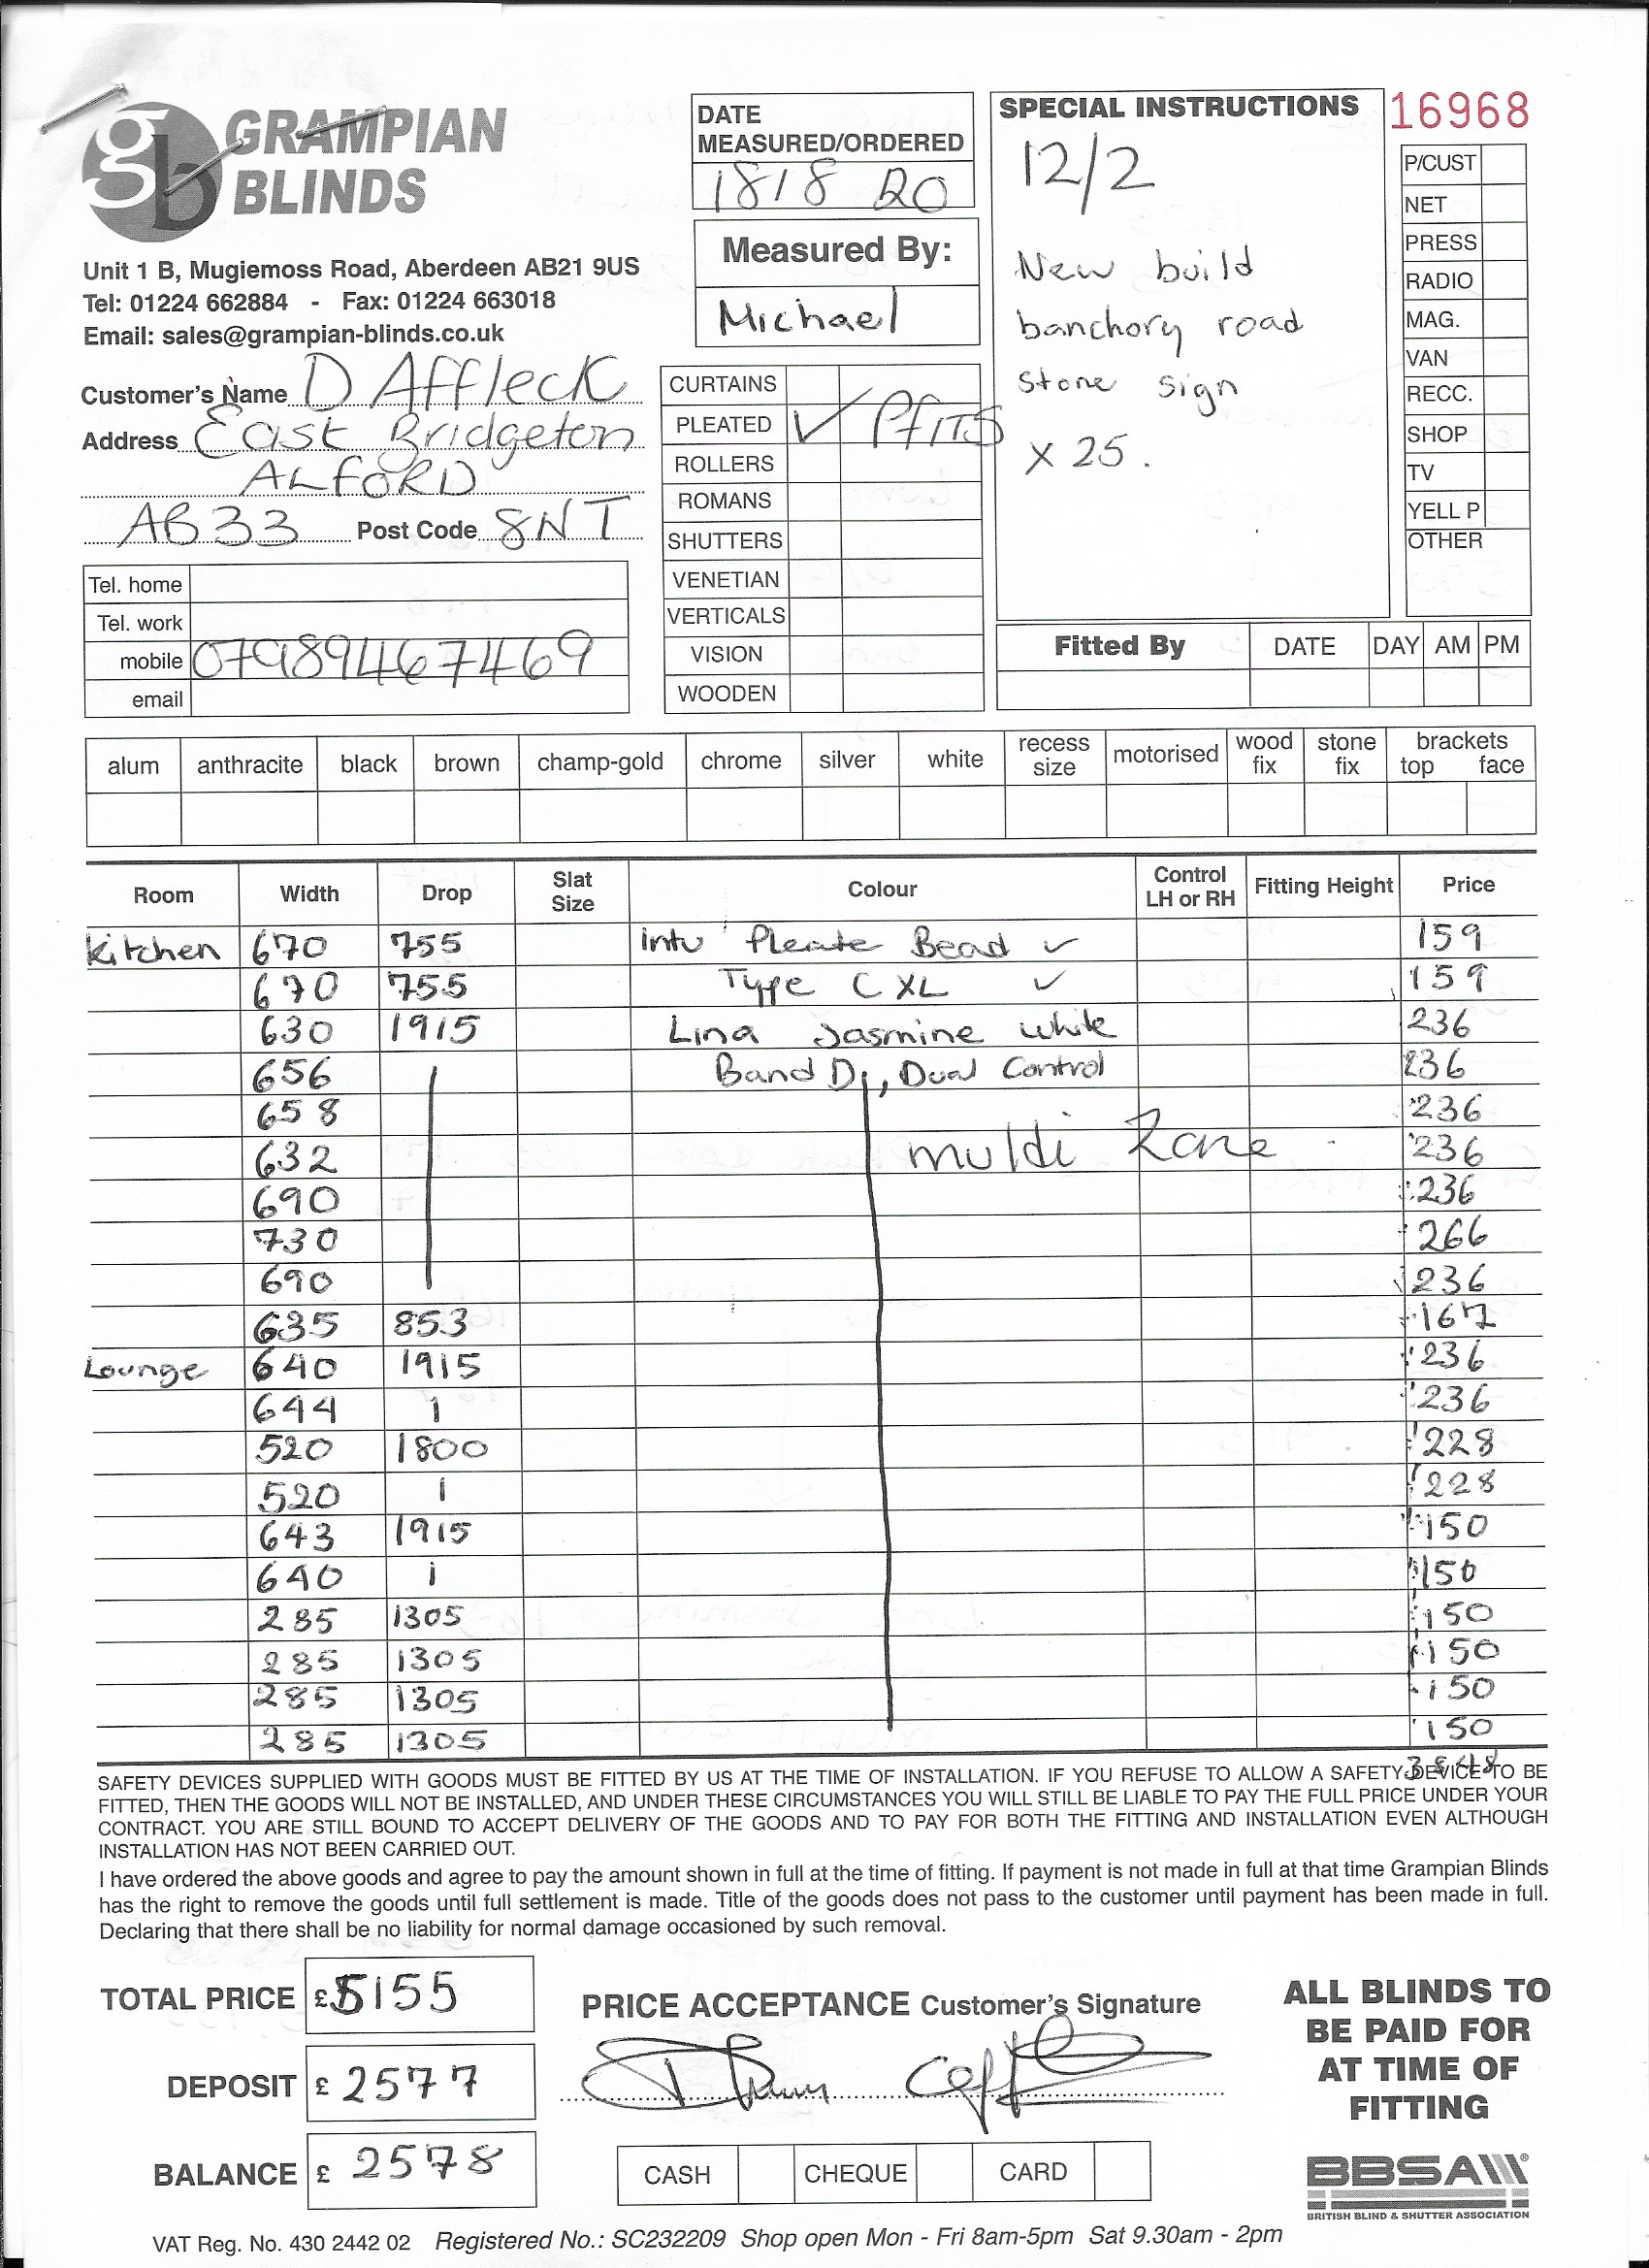 gb GRAMPIAN
BLINDS
Unit 1 B, Mugiemoss Road, Aberdeen AB21 9US
Tel: 01224 662884 - Fax: 01224 663018
Email: sales@grampian-blinds.co.uk
Customer's Name D Affleck
Address East Bridgeton
ALFORD
AB33 Post Code 8NT
Tel. home
Tel. work
mobile 07989467469
email
DATE
MEASURED/ORDERED
18/8 20
Measured By:
Michael
CURTAINS
PLEATED ✓ PFITS
ROLLERS
ROMANS
SHUTTERS
VENETIAN
VERTICALS
VISION
WOODEN
SPECIAL INSTRUCTIONS
12/2
New build
banchory road
stone sign
x 25.
16968
P/CUST
NET
PRESS
RADIO
MAG.
VAN
RECC.
SHOP
TV
YELL P
OTHER
Fitted By DATE DAY AM PM
alum anthracite black brown champ-gold chrome silver white recess size motorised wood fix stone fix brackets top face
Room Width Drop Slat Size Colour Control LH or RH Fitting Height Price
Kitchen 670 755 Intu Pleate Bead ✓ 159
670 755 Type C XL ✓ 159
630 1915 Lina Jasmine white 236
656 Band D, Dual Control 236
658 236
632 multi Zone 236
690 236
730 266
690 236
635 853 167
Lounge 640 1915 236
644 236
520 1800 228
520 228
643 1915 150
640 150
285 1305 150
285 1305 150
285 1305 150
285 1305 150
SAFETY DEVICES SUPPLIED WITH GOODS MUST BE FITTED BY US AT THE TIME OF INSTALLATION. IF YOU REFUSE TO ALLOW A SAFETY DEVICE TO BE
FITTED, THEN THE GOODS WILL NOT BE INSTALLED, AND UNDER THESE CIRCUMSTANCES YOU WILL STILL BE LIABLE TO PAY THE FULL PRICE UNDER YOUR
CONTRACT. YOU ARE STILL BOUND TO ACCEPT DELIVERY OF THE GOODS AND TO PAY FOR BOTH THE FITTING AND INSTALLATION EVEN ALTHOUGH
INSTALLATION HAS NOT BEEN CARRIED OUT.
I have ordered the above goods and agree to pay the amount shown in full at the time of fitting. If payment is not made in full at that time Grampian Blinds
has the right to remove the goods until full settlement is made. Title of the goods does not pass to the customer until payment has been made in full.
Declaring that there shall be no liability for normal damage occasioned by such removal.
TOTAL PRICE £5155
DEPOSIT £ 2577
BALANCE £ 2578
PRICE ACCEPTANCE Customer's Signature
CASH CHEQUE CARD
ALL BLINDS TO
BE PAID FOR
AT TIME OF
FITTING
BBSA
BRITISH BLIND & SHUTTER ASSOCIATION
VAT Reg. No. 430 2442 02 Registered No.: SC232209 Shop open Mon - Fri 8am-5pm Sat 9.30am - 2pm